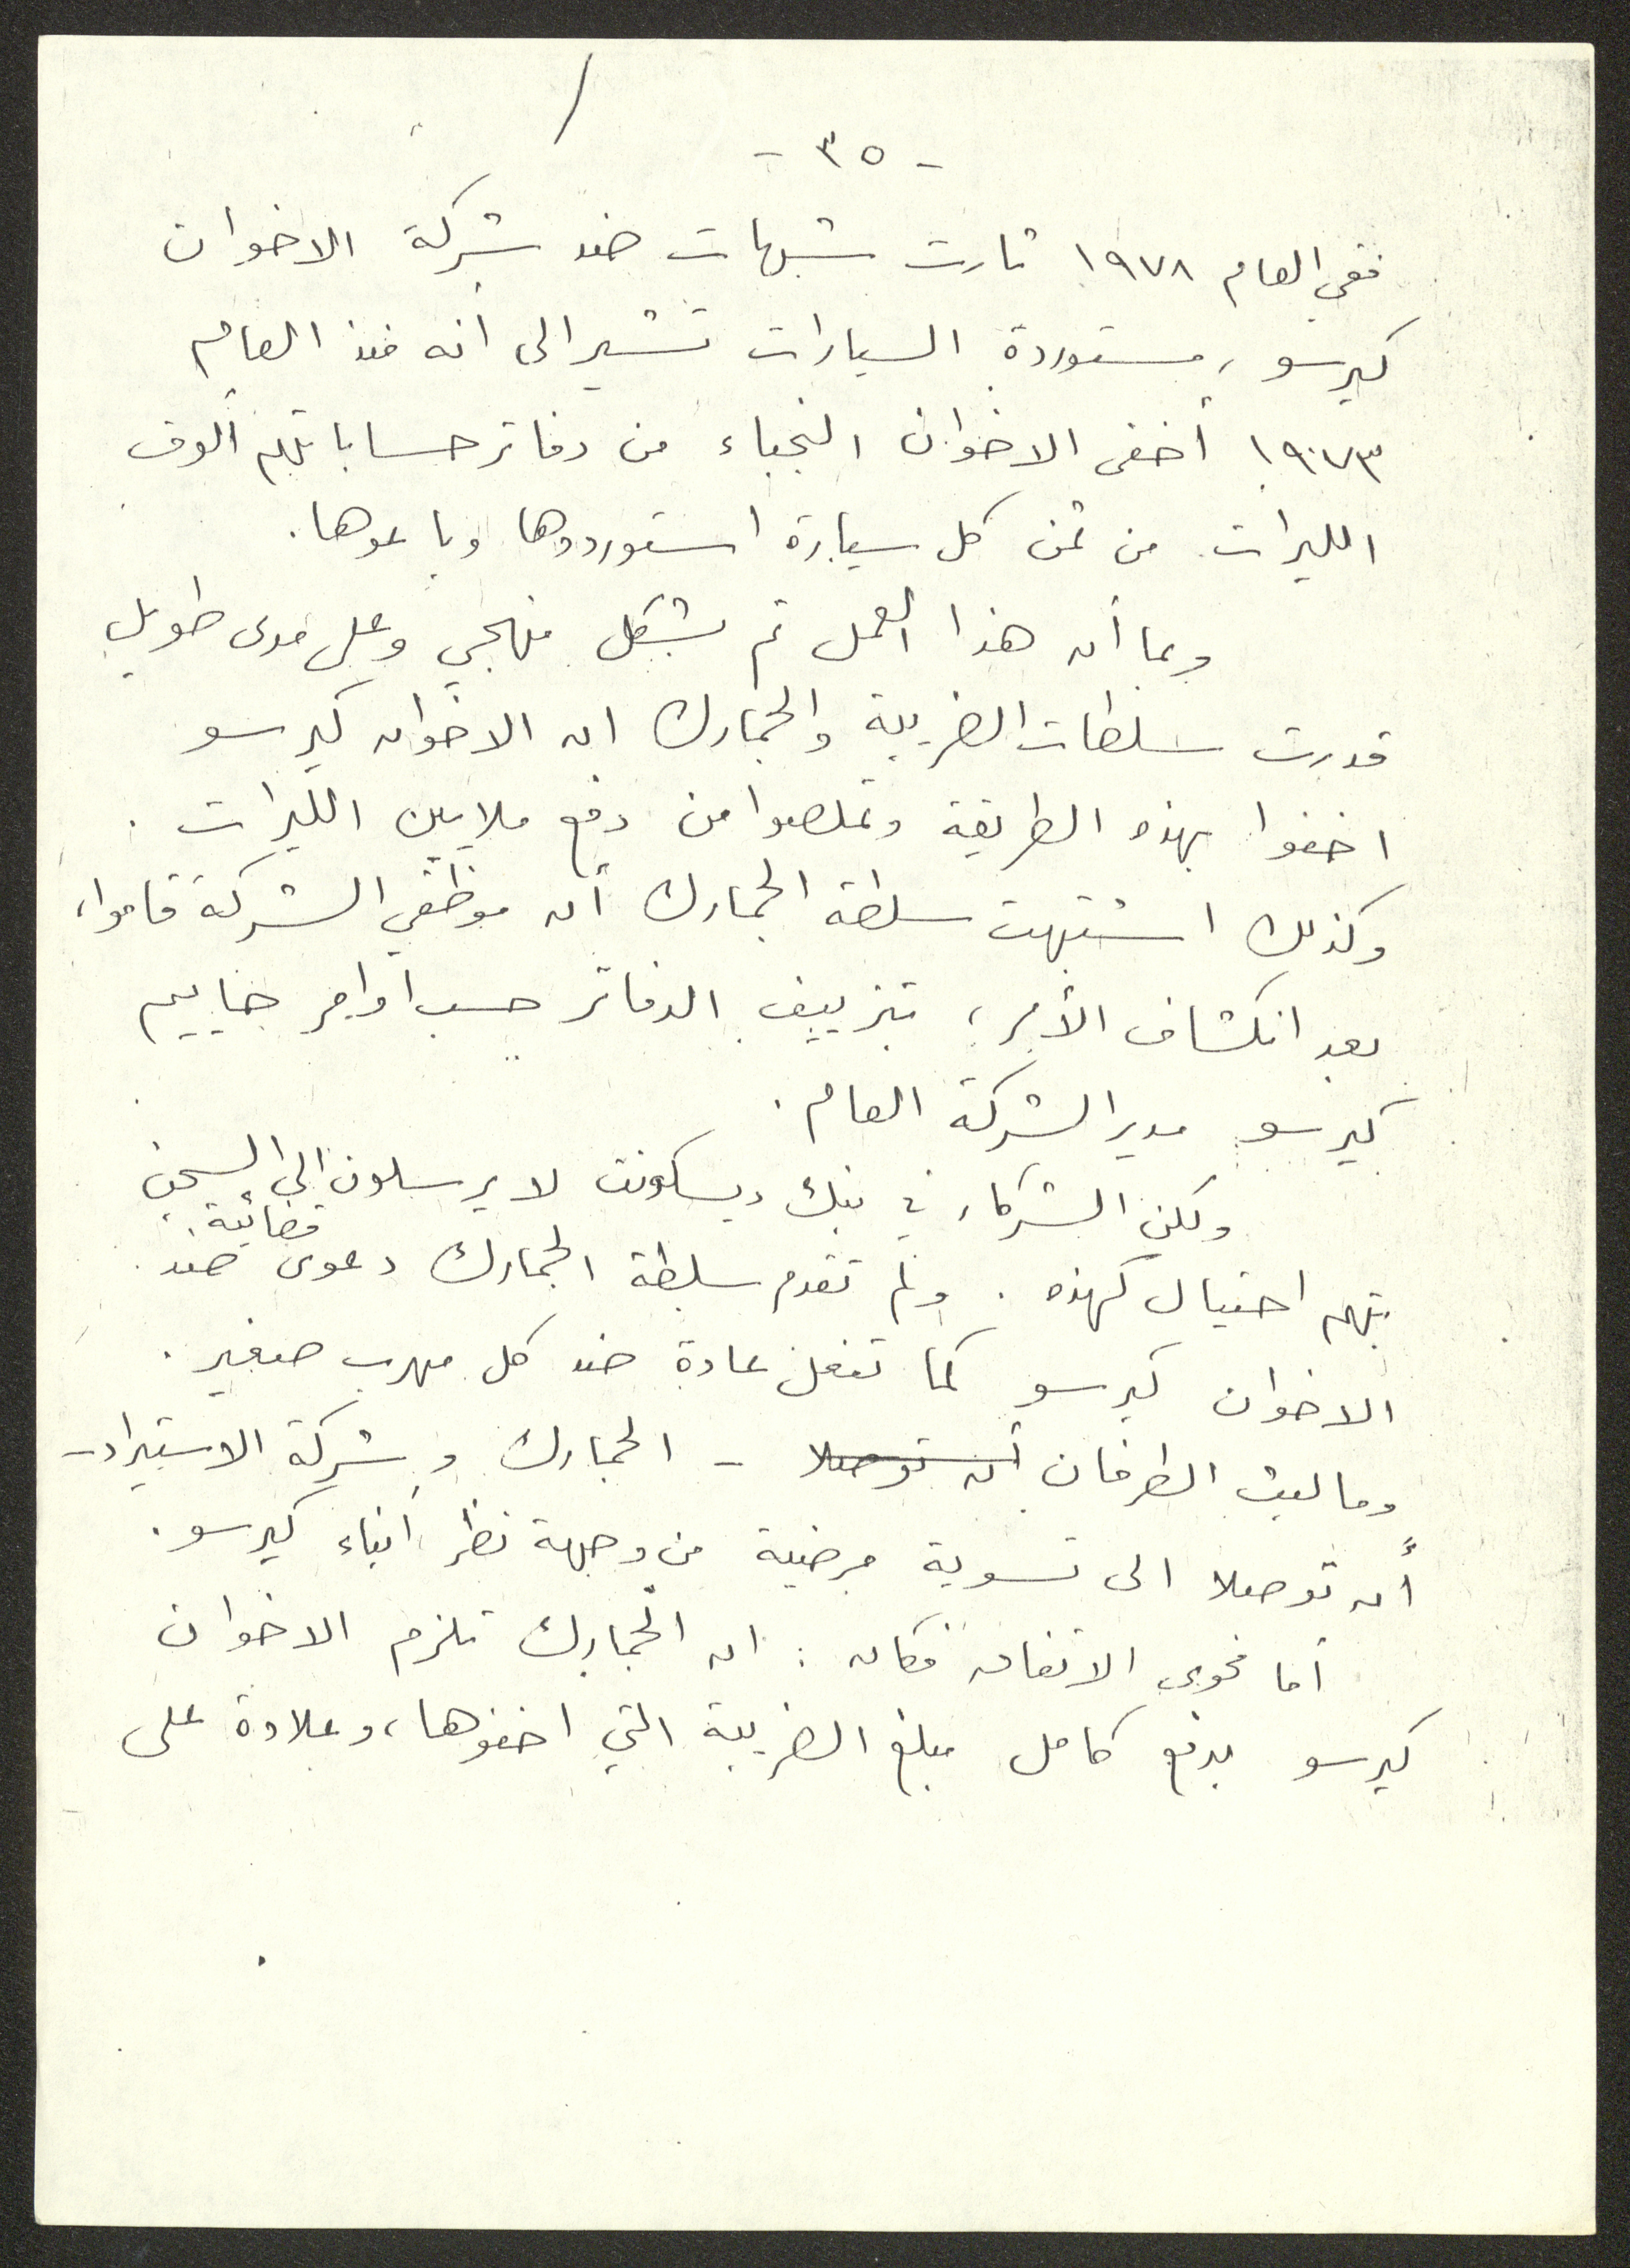 - ٣٥ -
ففي العام ١٩٧٨ ثارت شبهات ضد شركة الاخوان
كيرسو، مستوردة السيارات تشير الى أنه منذ العام
١٩٧٣ أخفى الاخوان النجباء من دفاتر حساباتهم ألوف
الليرات من ثمن كل سيارة استوردوها وباعوها.
وبما أن هذا العمل تم بشكل منهجي وعلى مدى طويل
قدرت سلطات الضريبة والجمارك ان الاخوان كيرسو
اخفوا بهذه الطريقة وتملصوا من دفع ملايين الليرات.
وكذلك اشتبهت سلطة الجمارك أن موظفي الشركة قاموا،
بعد انكشاف الأمر، بتزييف الدفاتر حسب اوامر حاييم
كيرسو مدير الشركة العام.
ولكن الشركاء في بنك ديسكونت لا يرسلون الى السجن
بتهم احتيال كهذه. ولم تقدم سلطة الجمارك دعوى قضائية ضد
الاخوان كيرسو كما تفعل عادة ضد كل مهرب صغير.
وما لبث الطرفان أن توصلا - الجمارك وشركة الاستيراد -
أن توصلا الى تسوية مرضية من وجهة نظر أبناء كيرسو.
أما فحوى الاتفاق فكان: ان الجمارك تلزم الاخوان
كيرسو بدفع كامل مبلغ الضريبة التي اخفوها، وعلاوة على